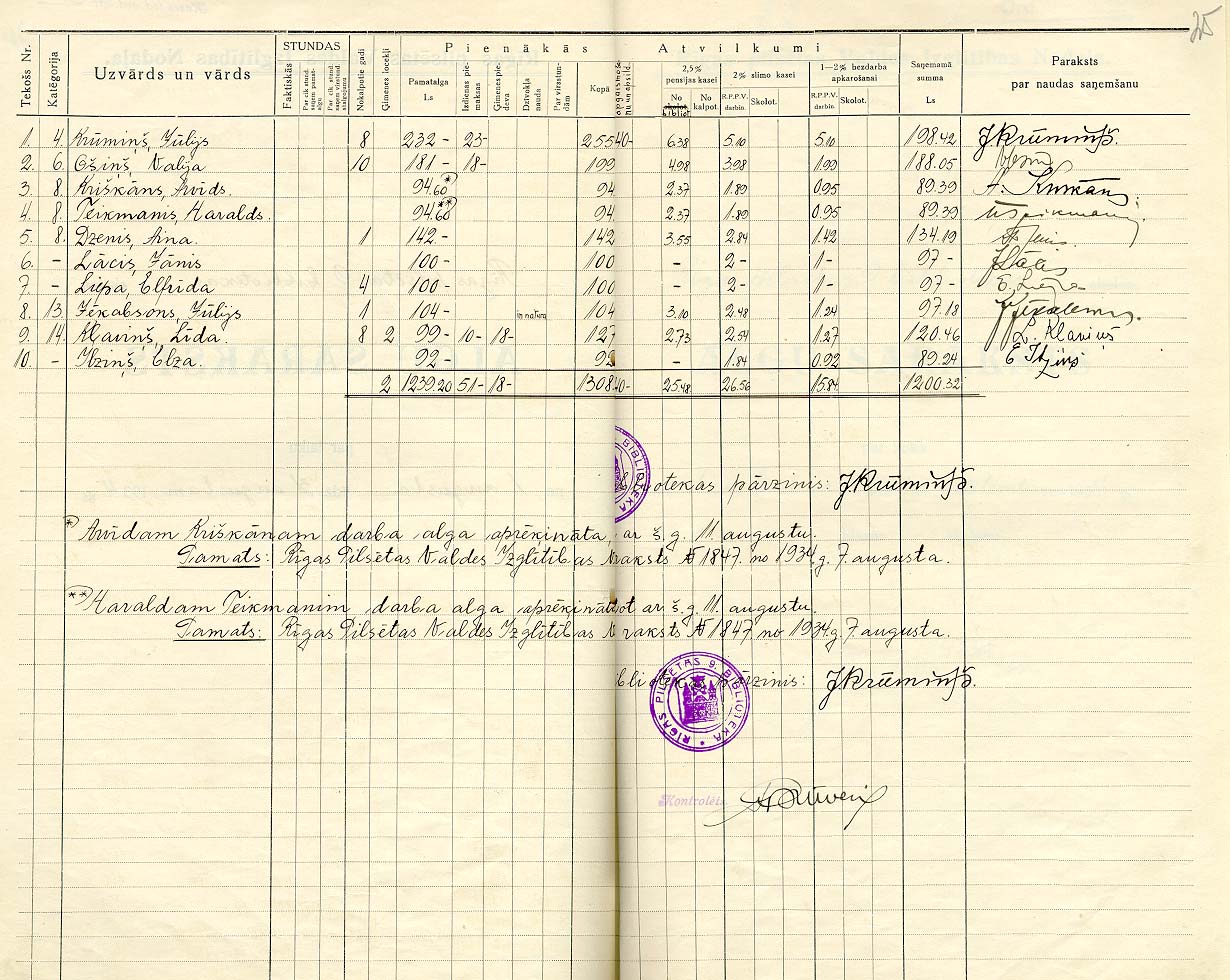 25
STUNDAS Pienākās Atvilkumi
Tekošs Nr. Katēgorija Uzvārds un vārds Faktiskās Nokalpotie gadi Ģimenes locekļi Pamatalga Ls Izdienas piemaksas Ģimenes piedeva Dzīvokļa nauda Par virsstundām Kopā 2,5% pensijas kasei 2% slimo kasei 1—2% bezdarba apkarošanai Saņemamā summa Ls Paraksts par naudas saņemšanu
No No kalpot. R.P.P.V. darbin. Skolot. R.P.P.V. darbin. Skolot.
1. 4. Krūmiņš, Jūlijs 8 232- 23- 255 40- 6.38 5.10 5.10 198.42 JKrūmiņš.
2. 6. Ošiņš, Valija 10 181- 18- 199 4.98 3.98 1.99 188.05
3. 8. Kriškāns, Arvīds. 94.60 *) 94 2.37 1.89 0.95 89.39
4. 8. Teikmanis, Haralds. 94.60 **) 94 2.37 1.89 0.95 89.39
5. 8. Dzenis, Aina. 1 142- 142 3.55 2.84 1.42 134.19
6. - Lācis, Jānis 100- 100 - 2- 1- 97- JLācis
7. - Liepa, Elfrīda 4 100- 100 - 2- 1- 97- E. Liepa
8. 13. Jēkabsons, Jūlijs 1 104- in natura 104 3.10 2.48 1.24 97.18
9. 14. Kļaviņš, Līda. 8 2 99- 10- 18- 127 2.73 2.54 1.27 120.46 L. Klaviņš
10. - Itziņš, Elza. 92- 92 - 1.84 0.92 89.24 E Itziņš
2 1239.20 51- 18- 1308. 40- 25.48 26.56 15.84 1200.32
BIBLIOTEKA
otekas pārzinis: JKrūmiņš.
*) Arvīdam Kriškānam darba alga aprēķināta ar š. g. 11. augustu.
Pamats: Rīgas Pilsētas Valdes Izglītības raksts № 1847. no 1934. g. 7. augusta.
**) Haraldam Teikmanim darba alga aprēķināt ot ar š. g. 11. augustu.
Pamats: Rīgas Pilsētas Valdes Izglītības raksts № 1847. no 1934. g. 7. augusta.
bliotekas pārzinis: JKrūmiņš.
RĪGAS PILSĒTAS 9. BIBLIOTEKA
Kontrolēts